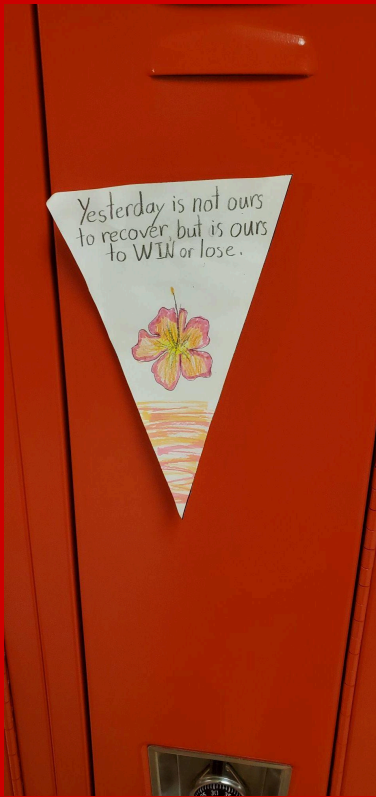 Yesterday is not ours
to recover, but is ours
to WIN or lose.